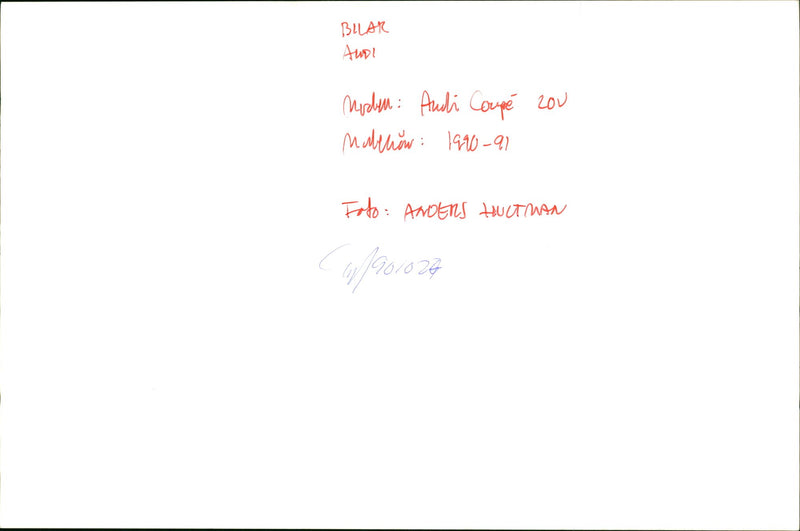 BILAR
AUDI
Modell: Audi Coupé 20V
Modellår: 1990-91
Foto: ANDERS HULTMAN
/901024